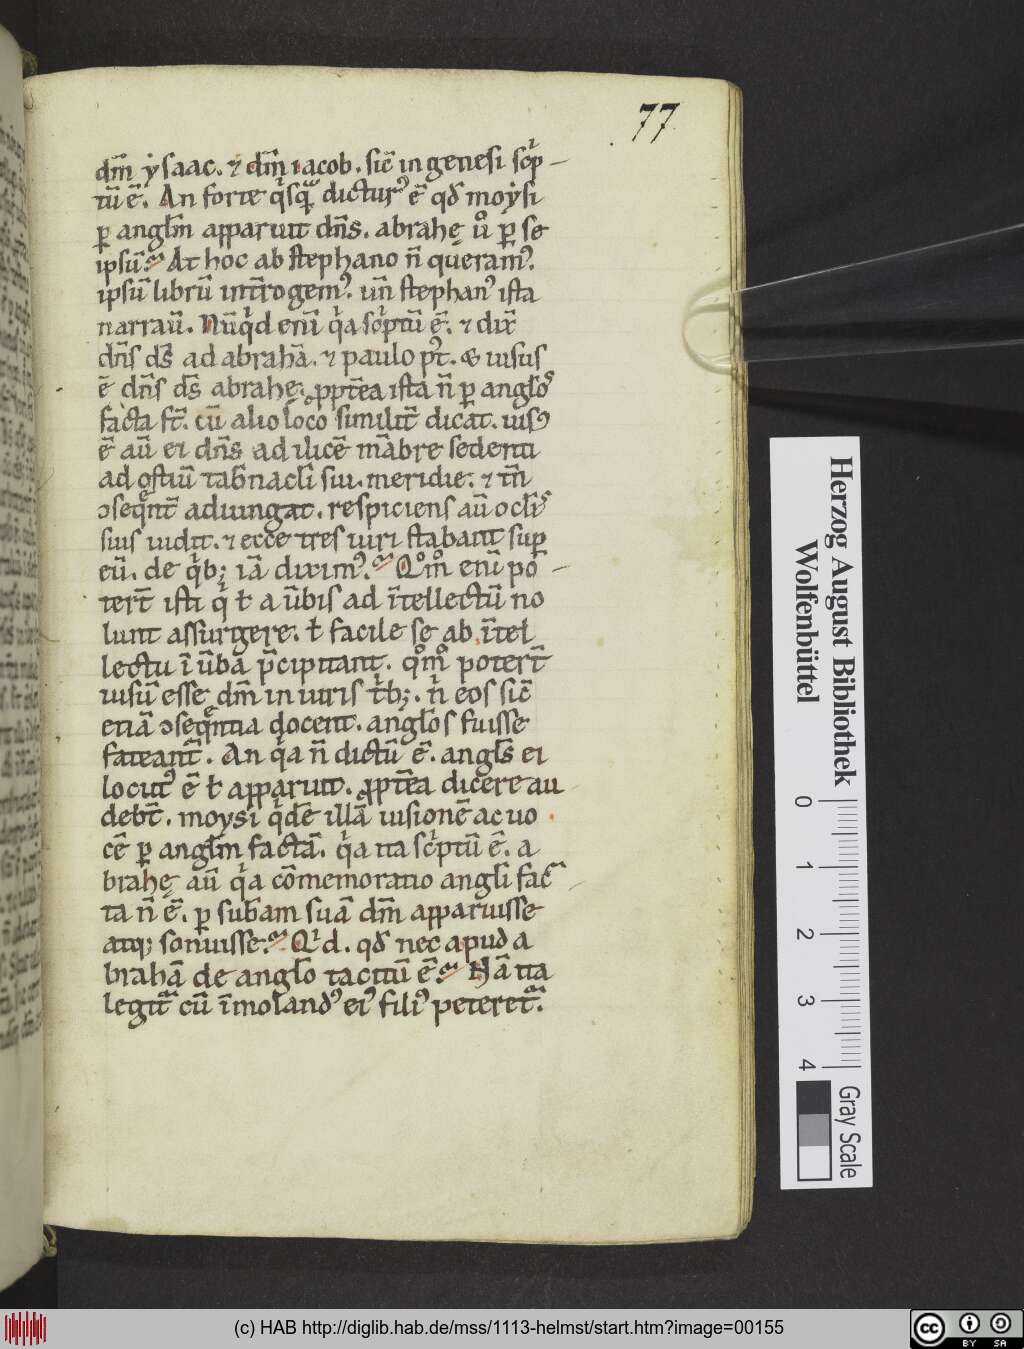 77
dm̄ ẏsaac. ⁊ dm̄ iacob. sic̄ in genesi scͥp-
tū ē. An forte qͥsqᷓ dicturꝰ ē qđ moẏsi
ꝑ anglm̄ apparuit dn̄s. abrahę ů ꝑ se
ipsū. At hoc ab stephano n̄ queramꝰ.
ipsū librū int̄rogemꝰ. un̄ stephanꝰ ista
narrau̅. Nūqͥd enī qͥa scͥptū ē. ⁊ dix̄
dn̄s ds̄ ad abrahā. ⁊ paulo pꝰt. & uisus
ē dn̄s ds̄ abrahę. ꝓpt̄ea ista n̄ ꝑ anglos̄
facta st̄. cū alio loco similit̄ dicat. uisꝰ
ē au̅ ei dn̄s ad ilicē mābre sedenti
ad ostiū tab̄nacli̅ sui. meridie. ⁊ tn̄
ↄseqn̄t̄ adiungat. respiciens au̅ oclis̄
suis uidit. ⁊ ecce tres uiri stabant suꝑ
eū. de qͥbꝫ iā diximꝰ. Qͦm̊ enī po-
tert̄ isti qͥ ł a u̅bis ad ītellectū no
lunt assurgere. ł facile se ab ītel
lectu ī u̅ba p̄cipitant. qͦm̊ potert̄
uisū esse dm̄ in uiris tͥbꝫ. nͥ eos sic̄
etiā ↄseqn̄tia docent. anglo̅s fuisse
fateant̄. An qͥa n̄ dictū ē. angls̄ ei
locutꝰ ē ł apparuit. ꝓpt̄ea dicere au
debt̄. moysi qͥdē illā uisionē ac uo
cē ꝑ anglm̄ factā. qͥa ita scͥptū ē. a
brahę au̅ qͥa cōmemoratio angli̅ fac-
ta n̄ ē. ꝑ subam̄ suā dm̄ apparuisse
atqꝫ sonuisse. Qͥd. qđ nec apud a
brahā de anglo̅ tacitū ē. Nā ita
legitᷓ cū īmolandꝰ eiꝰ filiꝰ peteretᷓ.
Herzog August Bibliothek
Wolfenbüttel
0 1 2 3 4
Gray Scale
(c) HAB http://diglib.hab.de/mss/1113-helmst/start.htm?image=00155
cc BY SA